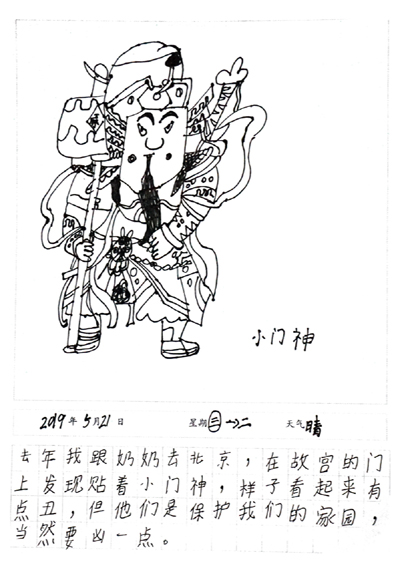 小门神
2019年5月21日 星期三→二 天气晴
去年我跟奶奶去北京，在故宫的门
上发现贴着小门神，样子看起来有
点丑，但他们是保护我们的家园，
当然要凶一点。